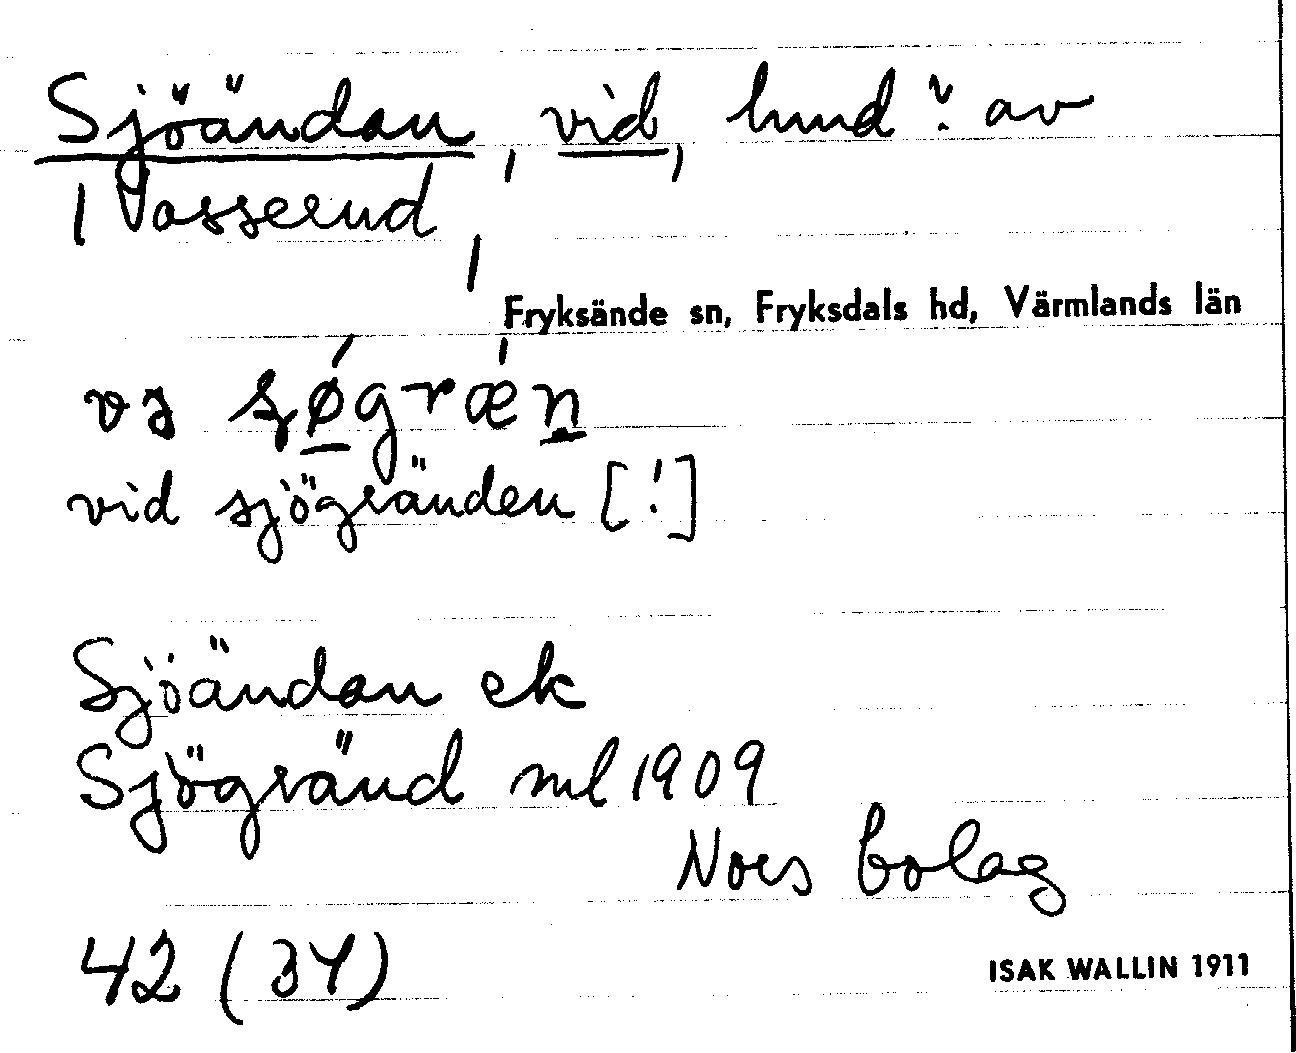 Sjöändan, vid, lund? av
1 Vasserud,
Fryksände sn, Fryksdals hd, Värmlands län
vid sjögränden [!]
Sjöändan ek
Sjögränd ml 1909
Nors bolag
42 (34)
ISAK WALLIN 1911